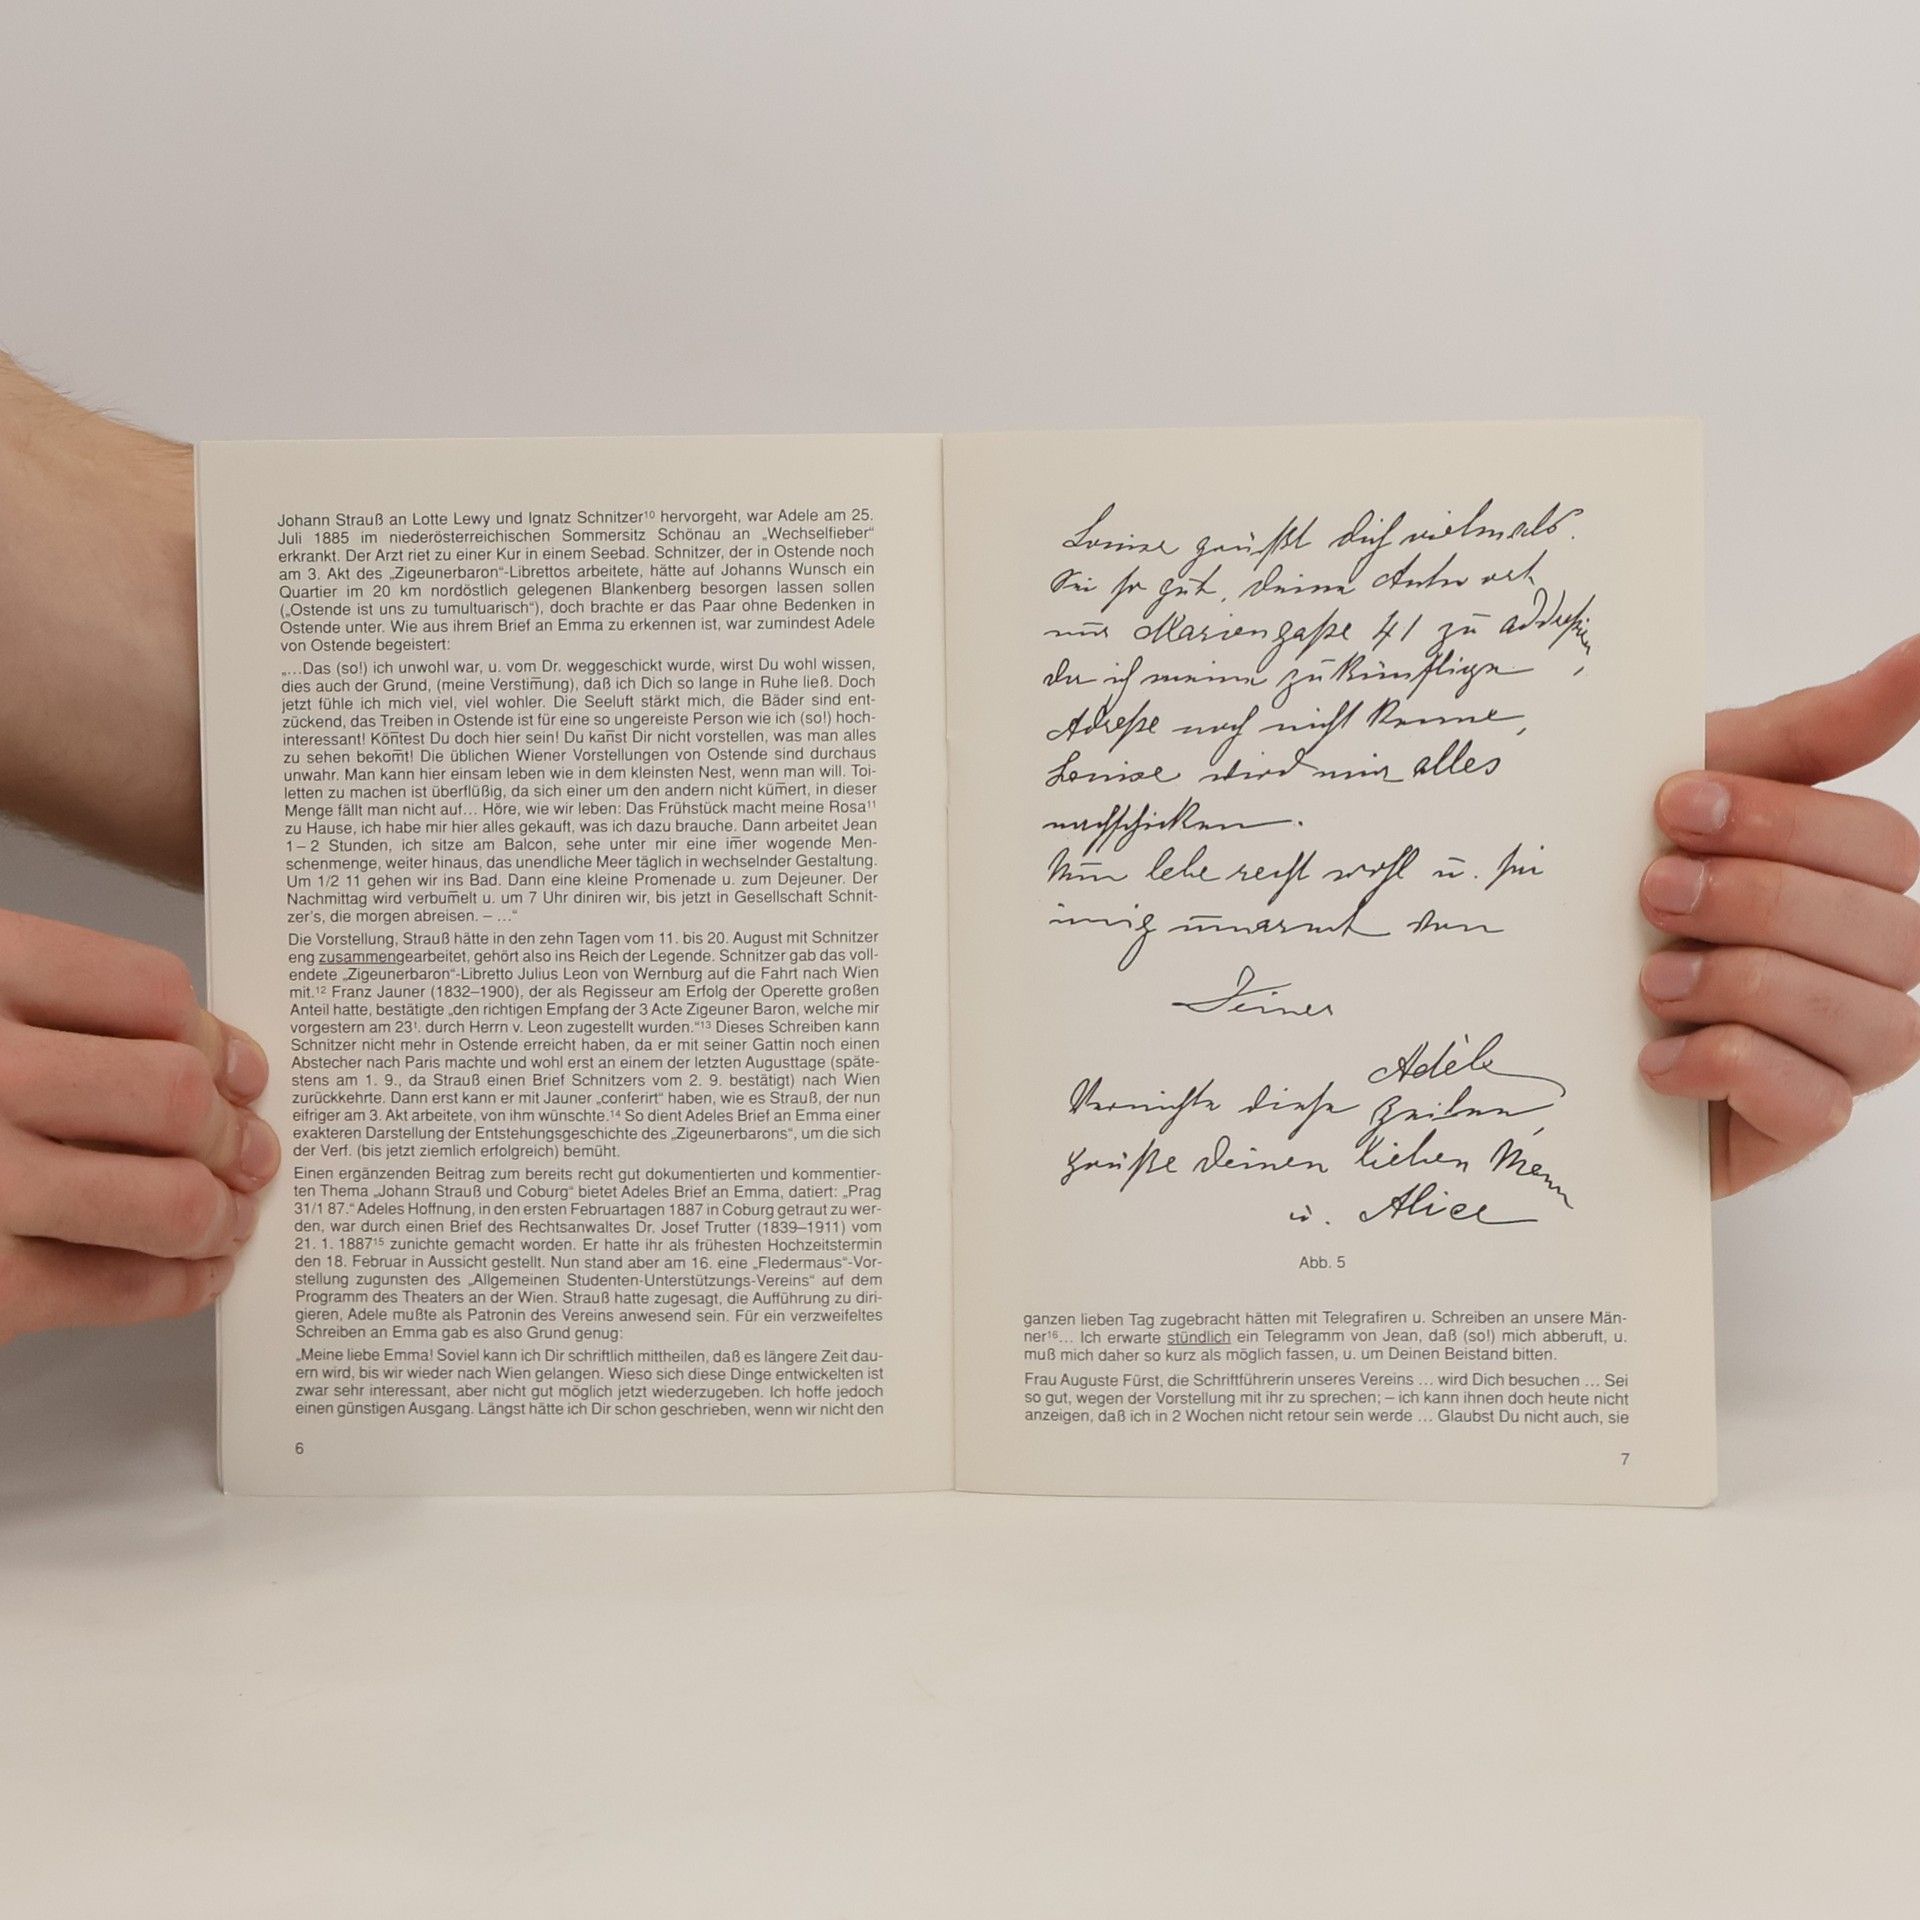 Johann Strauß an Lotte Lewy und Ignatz Schnitzer¹⁰ hervorgeht, war Adele am 25.
Juli 1885 im niederösterreichischen Sommersitz Schönau an „Wechselfieber“
erkrankt. Der Arzt riet zu einer Kur in einem Seebad. Schnitzer, der in Ostende noch
am 3. Akt des „Zigeunerbaron“-Librettos arbeitete, hätte auf Johanns Wunsch ein
Quartier im 20 km nordöstlich gelegenen Blankenberg besorgen lassen sollen
(„Ostende ist uns zu tumultuarisch“), doch brachte er das Paar ohne Bedenken in
Ostende unter. Wie aus ihrem Brief an Emma zu erkennen ist, war zumindest Adele
von Ostende begeistert:
„…Das (so!) ich unwohl war, u. vom Dr. weggeschickt wurde, wirst Du wohl wissen,
dies auch der Grund, (meine Verstim̅ung), daß ich Dich so lange in Ruhe ließ. Doch
jetzt fühle ich mich viel, viel wohler. Die Seeluft stärkt mich, die Bäder sind ent-
zückend, das Treiben in Ostende ist für eine so ungereiste Person wie ich (so!) hoch-
interessant! Kön̅test Du doch hier sein! Du kan̅st Dir nicht vorstellen, was man alles
zu sehen bekom̅t! Die üblichen Wiener Vorstellungen von Ostende sind durchaus
unwahr. Man kann hier einsam leben wie in dem kleinsten Nest, wenn man will. Toi-
letten zu machen ist überflüßig, da sich einer um den andern nicht küm̅ert, in dieser
Menge fällt man nicht auf… Höre, wie wir leben: Das Frühstück macht meine Rosa¹¹
zu Hause, ich habe mir hier alles gekauft, was ich dazu brauche. Dann arbeitet Jean
1–2 Stunden, ich sitze am Balcon, sehe unter mir eine im̅er wogende Men-
schenmenge, weiter hinaus, das unendliche Meer täglich in wechselnder Gestaltung.
Um 1/2 11 gehen wir ins Bad. Dann eine kleine Promenade u. zum Dejeuner. Der
Nachmittag wird verbum̅elt u. um 7 Uhr diniren wir, bis jetzt in Gesellschaft Schnit-
zer's, die morgen abreisen. – …“
Die Vorstellung, Strauß hätte in den zehn Tagen vom 11. bis 20. August mit Schnitzer
eng zusammengearbeitet, gehört also ins Reich der Legende. Schnitzer gab das voll-
endete „Zigeunerbaron“-Libretto Julius Leon von Wernburg auf die Fahrt nach Wien
mit.¹² Franz Jauner (1832–1900), der als Regisseur am Erfolg der Operette großen
Anteil hatte, bestätigte „den richtigen Empfang der 3 Acte Zigeuner Baron, welche mir
vorgestern am 23ᵗ. durch Herrn v. Leon zugestellt wurden.“¹³ Dieses Schreiben kann
Schnitzer nicht mehr in Ostende erreicht haben, da er mit seiner Gattin noch einen
Abstecher nach Paris machte und wohl erst an einem der letzten Augusttage (späte-
stens am 1. 9., da Strauß einen Brief Schnitzers vom 2. 9. bestätigt) nach Wien
zurückkehrte. Dann erst kann er mit Jauner „conferirt“ haben, wie es Strauß, der nun
eifriger am 3. Akt arbeitete, von ihm wünschte.¹⁴ So dient Adeles Brief an Emma einer
exakteren Darstellung der Entstehungsgeschichte des „Zigeunerbarons“, um die sich
der Verf. (bis jetzt ziemlich erfolgreich) bemüht.
Einen ergänzenden Beitrag zum bereits recht gut dokumentierten und kommentier-
ten Thema „Johann Strauß und Coburg“ bietet Adeles Brief an Emma, datiert: „Prag
31/1 87.“ Adeles Hoffnung, in den ersten Februartagen 1887 in Coburg getraut zu wer-
den, war durch einen Brief des Rechtsanwaltes Dr. Josef Trutter (1839–1911) vom
21. 1. 1887¹⁵ zunichte gemacht worden. Er hatte ihr als frühesten Hochzeitstermin
den 18. Februar in Aussicht gestellt. Nun stand aber am 16. eine „Fledermaus“-Vor-
stellung zugunsten des „Allgemeinen Studenten-Unterstützungs-Vereins“ auf dem
Programm des Theaters an der Wien. Strauß hatte zugesagt, die Aufführung zu diri-
gieren, Adele mußte als Patronin des Vereins anwesend sein. Für ein verzweifeltes
Schreiben an Emma gab es also Grund genug:
„Meine liebe Emma! Soviel kann ich Dir schriftlich mittheilen, daß es längere Zeit dau-
ern wird, bis wir wieder nach Wien gelangen. Wieso sich diese Dinge entwickelten ist
zwar sehr interessant, aber nicht gut möglich jetzt wiederzugeben. Ich hoffe jedoch
einen günstigen Ausgang. Längst hätte ich Dir schon geschrieben, wenn wir nicht den
6
Louise grüßt Dich vielmals.
Sei so gut, Deine Antwort
nur Mariengaße 41 zu addreßiren,
da ich meine zukünftige
Adreße noch nicht kenne,
Louise wird mir alles
nachschicken.
Nun lebe recht wohl u. sei
innig umarmt von
Deiner
Adèle
Vernichte diese Zeilen,
grüße Deinen lieben Mann
u. Alice
Abb. 5
ganzen lieben Tag zugebracht hätten mit Telegrafiren u. Schreiben an unsere Män-
ner¹⁶… Ich erwarte stündlich ein Telegramm von Jean, daß (so!) mich abberuft, u.
muß mich daher so kurz als möglich fassen, u. um Deinen Beistand bitten.
Frau Auguste Fürst, die Schriftführerin unseres Vereins … wird Dich besuchen … Sei
so gut, wegen der Vorstellung mit ihr zu sprechen; – ich kann ihnen doch heute nicht
anzeigen, daß ich in 2 Wochen nicht retour sein werde … Glaubst Du nicht auch, sie
7